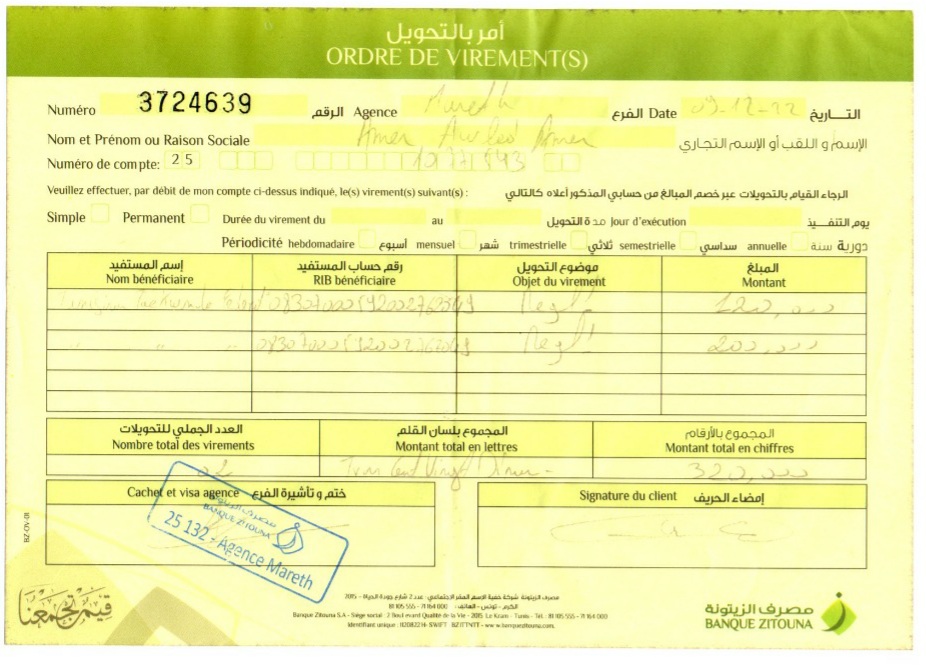 أمر بالتحويل
ORDRE DE VIREMENT(S)
Numéro 3724639 الرقم Agence Mareth الفرع Date 09-12-22 التـــاريخ
Nom et Prénom ou Raison Sociale Amer Amer الإسم و اللقب أو الإسم التجاري
Numéro de compte: 25
Veuillez effectuer, par débit de mon compte ci-dessus indiqué, le(s) virement(s) suivant(s) : الرجاء القيام بالتحويلات عبر خصم المبالغ من حسابي المذكور أعلاه كالتالي
Simple Permanent Durée du virement du au مدة التحويل Jour d'exécution يوم التنفـــيذ
Périodicité hebdomadaire أسبوع mensuel شهر trimestrielle ثلاثي semestrielle سداسي annuelle سنة دورية
إسم المستفيد رقم حساب المستفيد موضوع التحويل المبلغ
Nom bénéficiaire RIB bénéficiaire Objet du virement Montant
Taekwondo Regl 120,000
" " " Regl 200,000
العدد الجملي للتحويلات المجموع بلسان القلم المجموع بالأرقام
Nombre total des virements Montant total en lettres Montant total en chiffres
02 Trois Cent Vingt Dinars 320,000
Cachet et visa agence ختم و تأشيرة الفرع Signature du client إمضاء الحريف
مصرف الزيتونة
BANQUE ZITOUNA
25 132 - Agence Mareth
BZ-OV-01
قيم تجمعنا
مصرف الزيتونة شركة خفية الإسم المقر الاجتماعي: عدد 2 شارع جودة الحياة - 2015
الكرم - تونس - الهاتف: 71 164 000 - 81 105 555
Banque Zitouna S.A - Siège social : 2 Boulevard Qualité de la Vie - 2015 Le Kram - Tunis - Tél. : 81 105 555 - 71 164 000
Identifiant unique : 1120822 H- SWIFT BZITTNTT - www.banquezitouna.com.
مصرف الزيتونة
BANQUE ZITOUNA